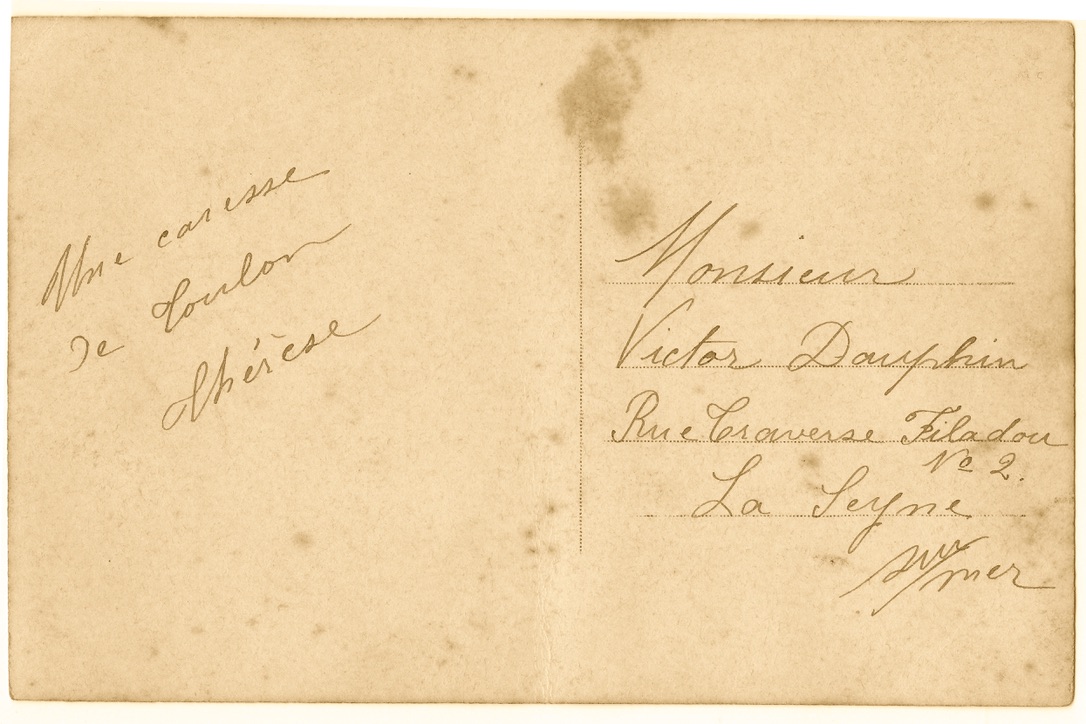 Une caresse
de Toulon
Thérèse
Monsieur
Victor Dauphin
Rue Traverse Filadou
No 2.
La Seyne
sur/mer